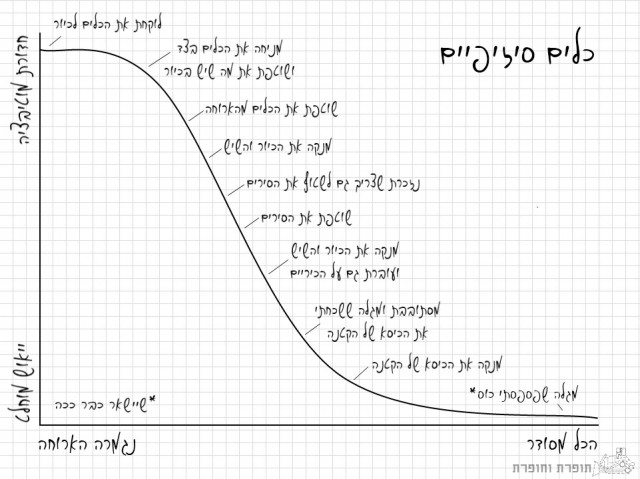 כלים סיזיפיים
חדורת מוטיבציה
לוקחת את הכלים לכיור
מניחה את הכלים בצד
ושוטפת את מה שיש בכיור
שוטפת את הכלים מהארוחה
מנקה את הכיור והשיש
נזכרת שצריך גם לשטוף את הסירים
שוטפת את הסירים
מנקה את הכיור והשיש
ועוברת גם על הכיריים
מסתובבת ומגלה ששכחתי
את הכיסא של הקטנה
מנקה את הכיסא של הקטנה
מגלה שפספסתי כוס*
*שיישאר כבר ככה
ייאוש מוחלט
נגמרה הארוחה
הכל מסודר
תופרת וחופרת